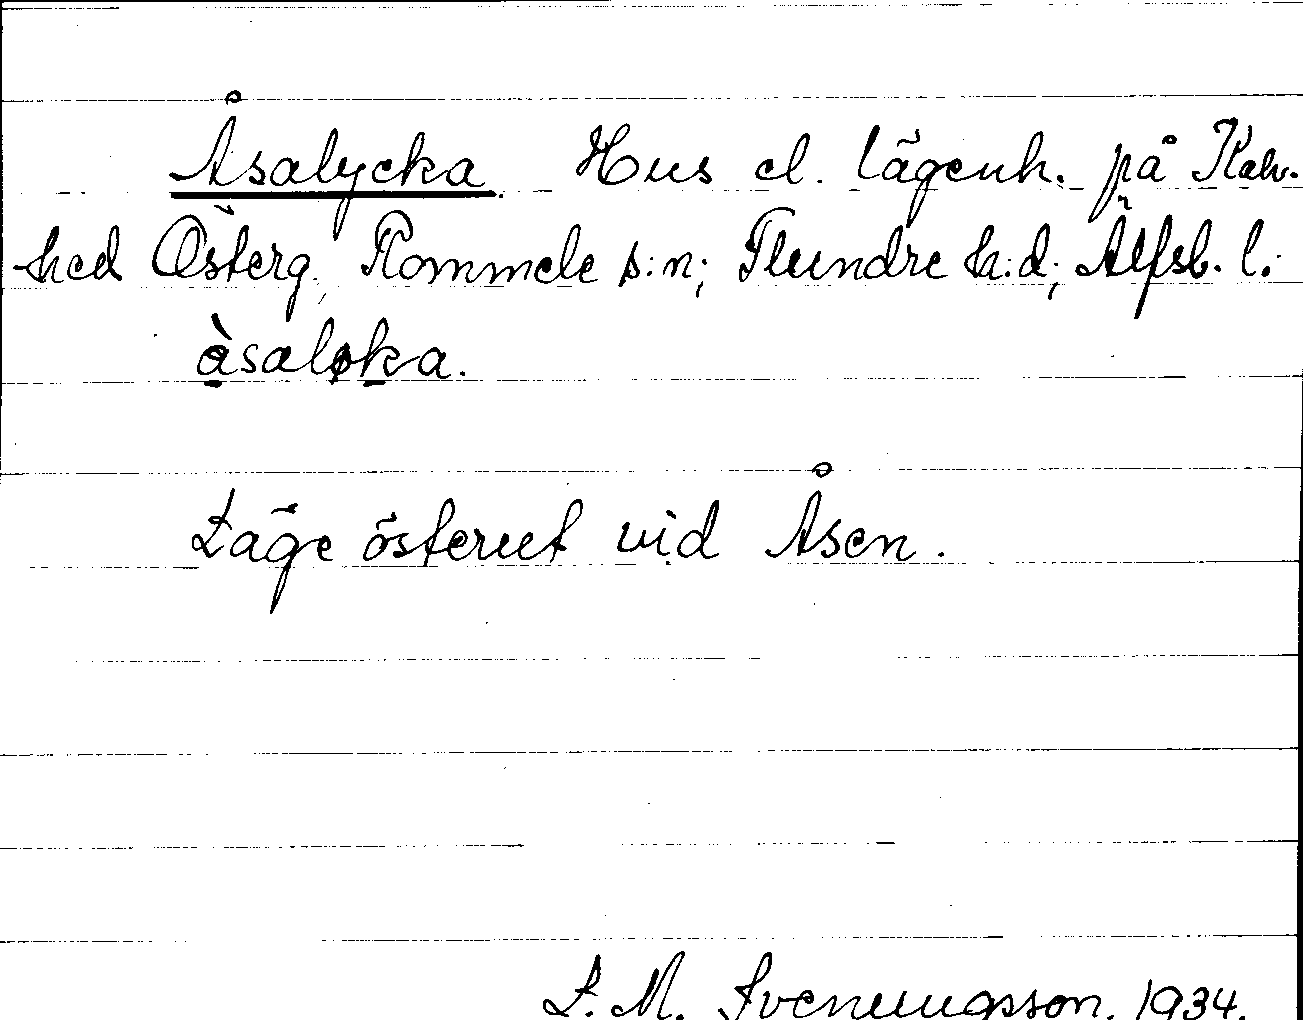 Åsalycka. Hus el. lägenh. på Kalv-
hed Österg., Rommele s:n; Flundre h:d; Älfsb. l.
àsaløka.
Läge österut vid Åsen.
L. M. Svenungsson. 1934.